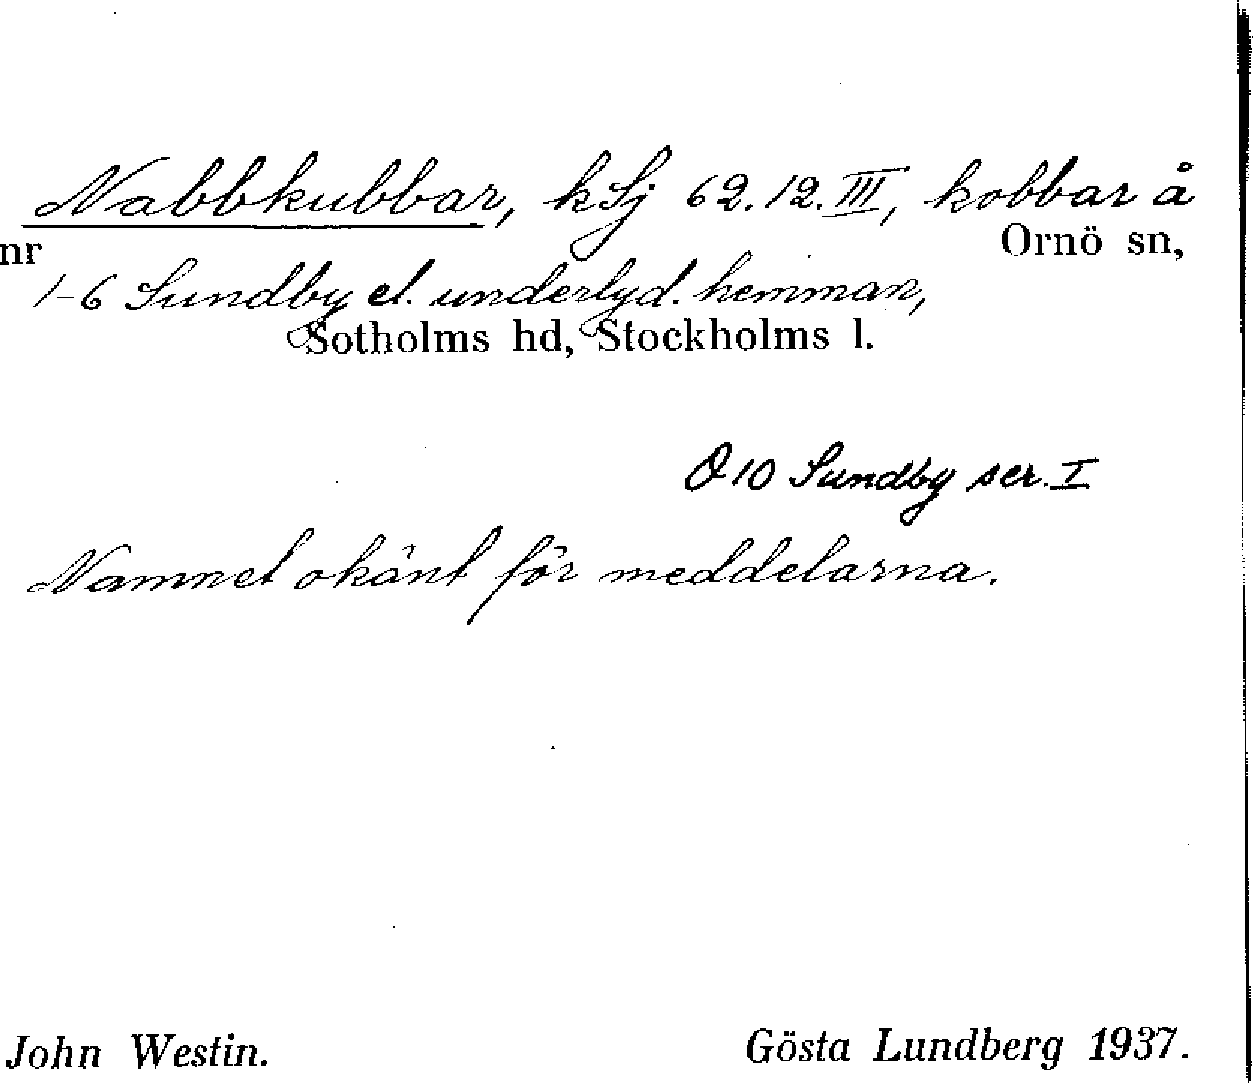 Nabbkubbar, kSj 62.12.III, kobbar å
nr Ornö sn,
1-6 Sundby el. underlyd. hemman,
Sotholms hd, Stockholms l.
Ö10 Sundby ser. I
Namnet okänt för meddelarna.
John Westin. Gösta Lundberg 1937.